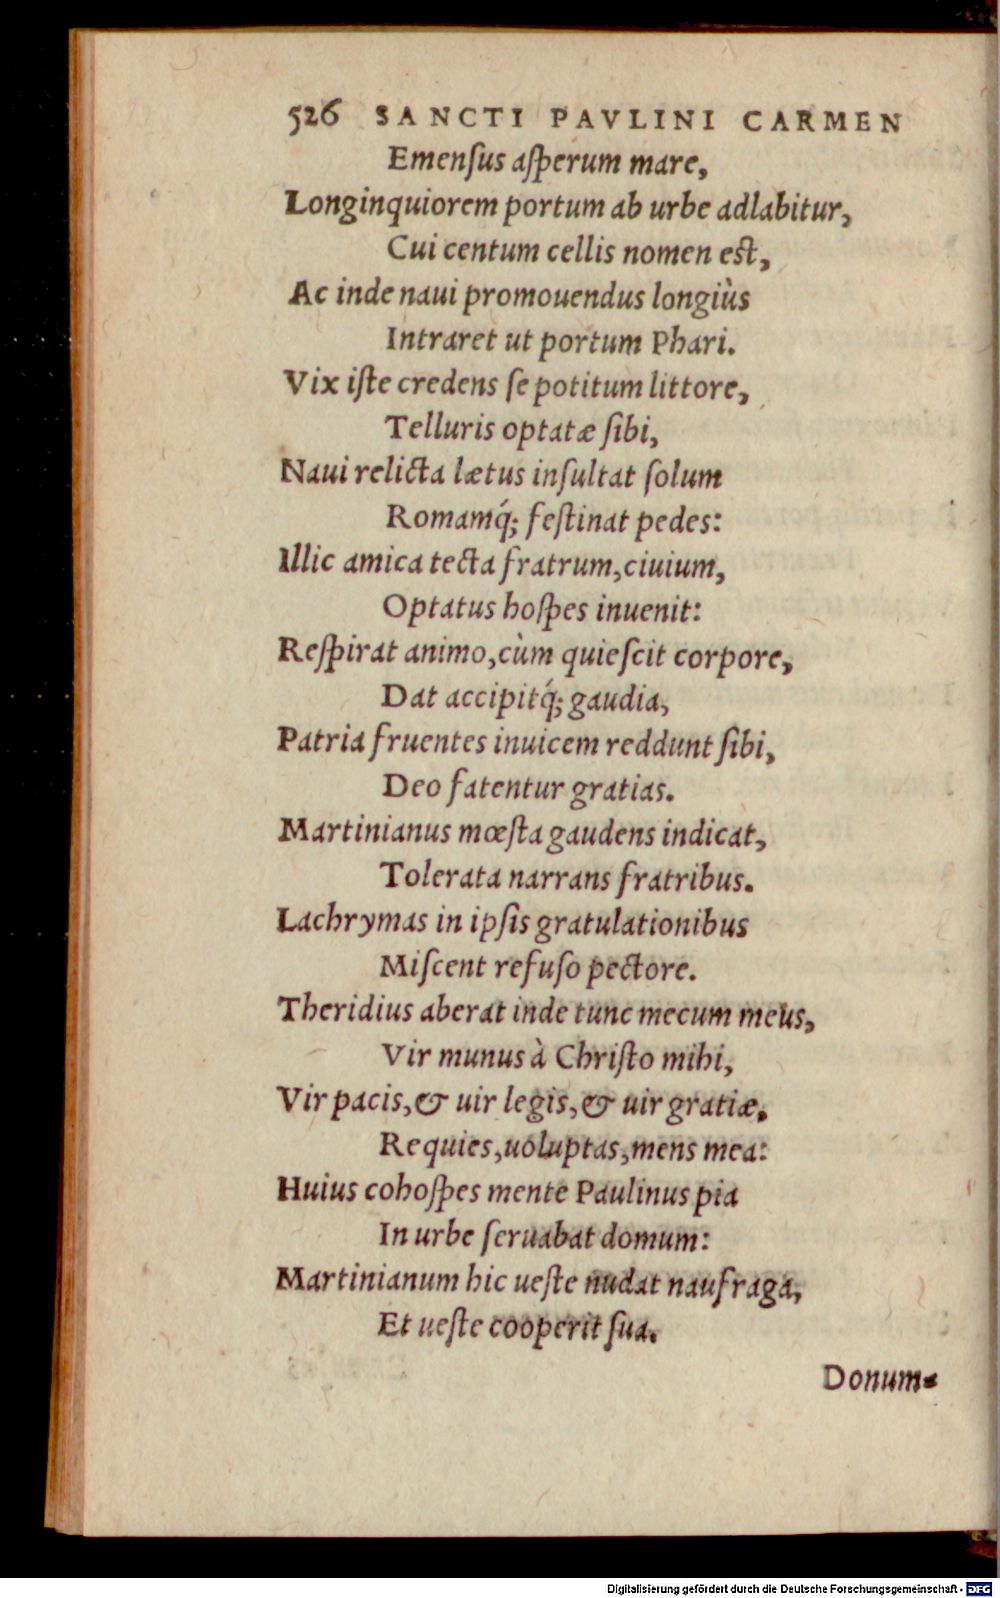 526 SANCTI PAVLINI CARMEN
Emenſus aſperum mare,
Longinquiorem portum ab urbe adlabitur,
Cui centum cellis nomen eſt,
Ac inde naui promouendus longiùs
Intraret ut portum Phari.
Vix iſte credens ſe potitum littore,
Telluris optatæ ſibi,
Naui relicta lætus inſultat ſolum
Romamq́; feſtinat pedes:
Illic amica tecta fratrum, ciuium,
Optatus hoſpes inuenit:
Reſpirat animo, cùm quieſcit corpore,
Dat accipitq́; gaudia,
Patria fruentes inuicem reddunt ſibi,
Deo fatentur gratias.
Martinianus mœſta gaudens indicat,
Tolerata narrans fratribus.
Lachrymas in ipſis gratulationibus
Miſcent refuſo pectore.
Theridius aberat inde tunc mecum meus,
Vir munus à Chriſto mihi,
Vir pacis, & uir legis, & uir gratiæ,
Requies, uoluptas, mens mea:
Huius cohoſpes mente Paulinus pia
In urbe ſeruabat domum:
Martinianum hic ueſte nudat naufraga,
Et ueſte cooperit ſua.
Donum-
Digitalisierung gefördert durch die Deutsche Forschungsgemeinschaft - DFG